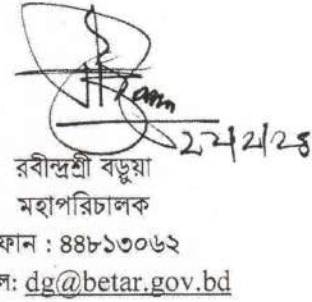 রবীন্দ্রশ্রী বড়ুয়া
মহাপরিচালক
ফোন : ৪৪৮১৩০৬২
ল: dg@betar.gov.bd